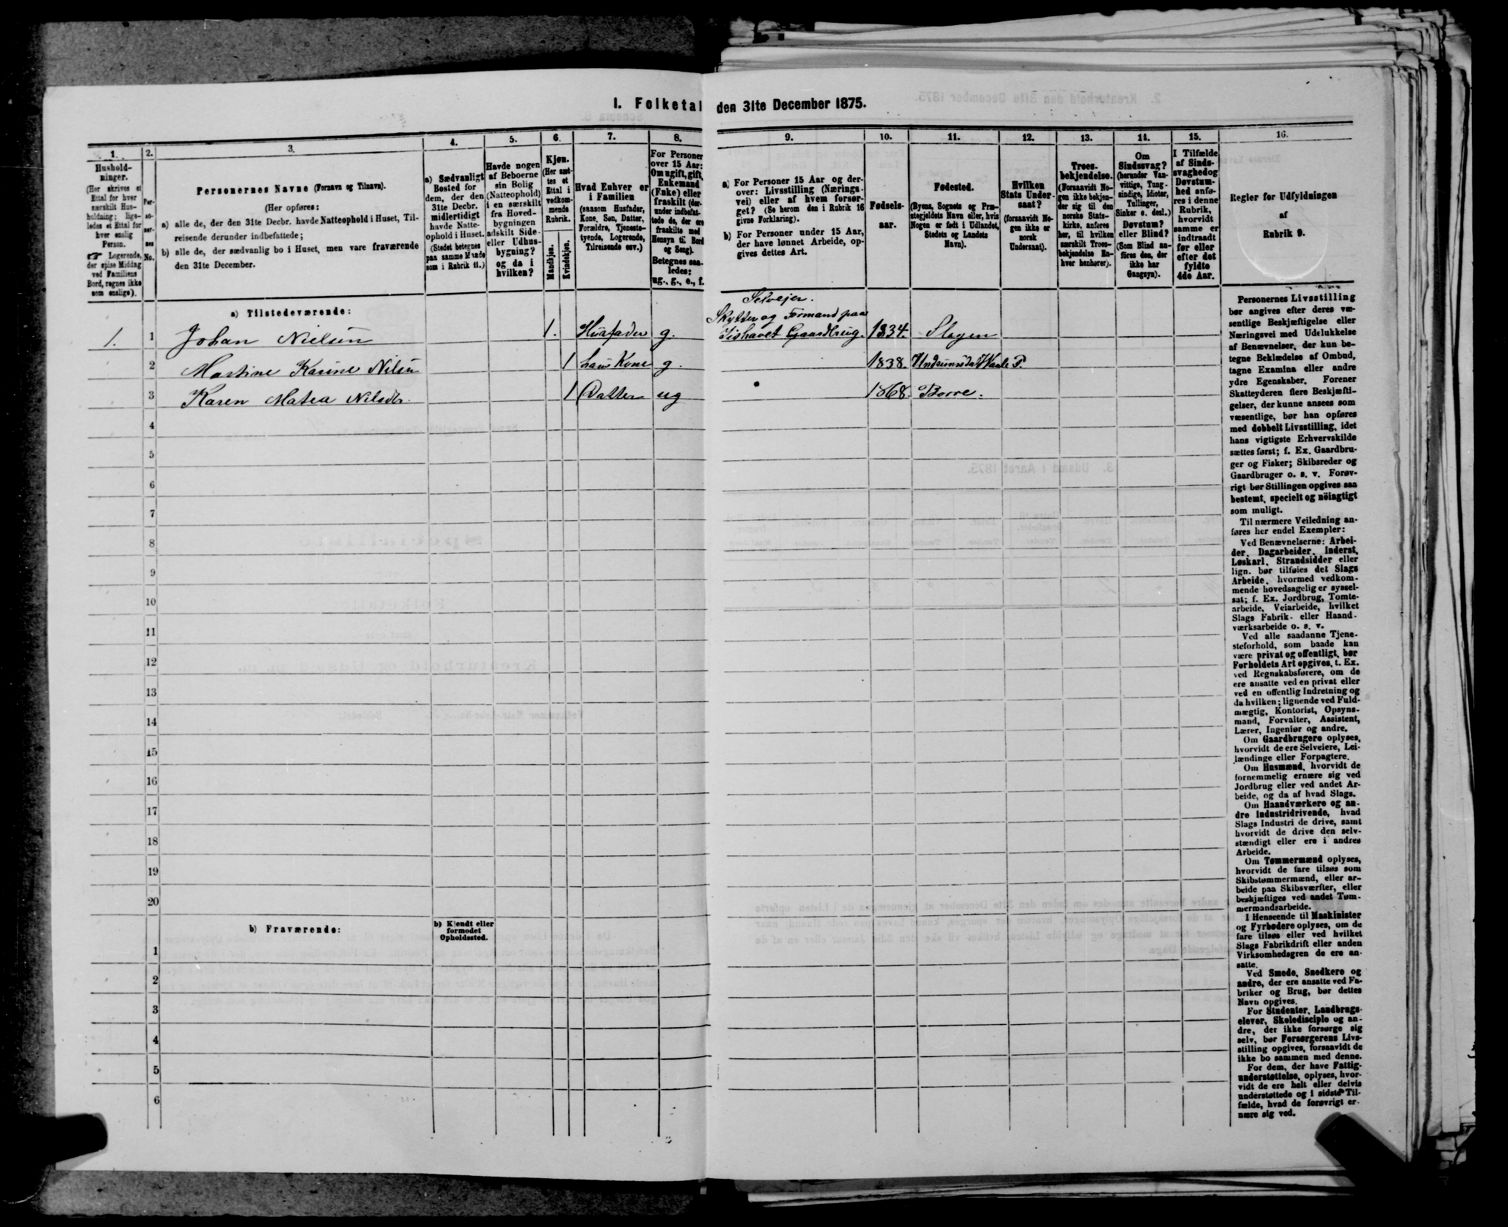 I. Folketal den 31te December 1875.
1.
2.
3.
4.
5.
6.
7.
8.
9.
10.
11.
12.
13.
14.
15.
16.
Hushold-
ninger.
(Her skrives et
Ettal for hver
særskilt Hus-
holdning; lige-
ledes et Ettal for
hver enslig
Person.
☛ Logerende,
der spise Middag
ved Familiens
Bord, regnes ikke
som enslige).
Per-
so-
ner-
nes
No.
Personernes Navne (Fornavn og Tilnavn).
(Her opføres:
a) alle de, der den 31te Decbr. havde Natteophold i Huset, Til-
reisende derunder indbefattede;
b) alle de, der sædvanlig bo i Huset, men vare fraværende
den 31te December.
a) Sædvanligt
Bosted for
dem, der den
31te Decbr.
midlertidigt
havde Natte-
ophold i Huset.
(Stedet betegnes
paa samme Maade
som i Rubrik 11.)
Havde nogen
af Beboerne
sin Bolig
(Natteophold)
i en særskilt
fra Hoved-
bygningen
adskilt Side-
eller Udhus-
bygning?
og da i
hvilken?
Kjøn.
(Her sæt-
tes et
Ettal i
vedkom-
mende
Rubrik.
Mandkjøn.
Kvindekjøn.
Hvad Enhver er
i Familien
(saasom Husfader,
Kone, Søn, Datter,
Forældre, Tjeneste-
tyende, Logerende,
Tilreisende osv.)
For Personer
over 15 Aar:
Om ugift, gift,
Enkemand
(Enke) eller
fraskilt (der-
under indbefat-
tede de, der ere
fraskilte med
Hensyn til Bord
og Seng).
Betegnes saa-
ledes:
ug., g., e., f.
a) For Personer 15 Aar og der-
over: Livsstilling (Nærings-
vei) eller af hvem forsør-
get? (Se herom den i Rubrik 16
givne Forklaring).
b) For Personer under 15 Aar,
der have lønnet Arbeide, op-
gives dettes Art.
Fødsels-
aar.
Fødested.
(Byens, Sognets og Præ-
stegjeldets Navn eller, hvis
Nogen er født i Udlandet,
Stedets og Landets
Navn).
Hvilken
Stats Under-
saat?
(forsaavidt No-
gen ikke er
norsk
Undersaat).
Troes-
bekjendelse.
(Forsaavidt No-
gen ikke bekjen-
der sig til den
norske Stats-
kirke, anføres
her, til hvilken
særskilt Troes-
bekjendelse En-
hver henhører).
Om
Sindssvag?
(herunder Van-
vittige, Tung-
sindige, Idioter,
Tullinger,
Sinker o. desl.)
Døvstum?
eller Blind?
(Som Blind an-
føres den, der
ikke har
Gangsyn).
I Tilfælde
af Sinds-
svaghed og
Døvstum-
hed anfø-
res i denne
Rubrik,
hvorvidt
samme er
indtraadt
før eller
efter det
fyldte
4de Aar.
Regler for Udfyldningen
af
Rubrik 9.
a) Tilstedeværende:
1. 1 Johan Nielsen 1. Husfader g. Selveier. Skylder og Formand paa Gaardbrug. 1834. Slagen
2 Martine Karine Nilsen 1 hans Kone g. 1838.
3 Karen Matea Nilsdtr. 1 Datter ug 1868. Borre.
4
5
6
7
8
9
10
11
12
13
14
15
16
17
18
19
20
b) Fraværende:
b) Kjendt eller
formodet
Opholdssted.
1
2
3
4
5
6
Personernes Livsstilling
bør angives efter deres væ-
sentlige Beskjæftigelse eller
Næringsvei med Udelukkelse
af Benævnelser, der kun be-
tegne Beklædelse af Ombud,
tagne Examina eller andre
ydre Egenskaber. Forener
Skatteyderen flere Beskjæfti-
gelser, der kunne ansees som
væsentlige, bør han opføres
med dobbelt Livsstilling, idet
hans vigtigste Erhvervskilde
sættes først; f. Ex. Gaardbru-
ger og Fisker; Skibsreder og
Gaardbruger o. s. v. Forøv-
rigt bør Stillingen opgives saa
bestemt, specielt og nöiagtigt
som muligt.
Til nærmere Veiledning an-
føres her endel Exempler:
Ved Benævnelserne: Arbei-
der, Dagarbeider, Inderst,
Løskarl, Strandsidder eller
lign. bør tilføies det Slags
Arbeide, hvormed vedkom-
mende hovedsagelig er syssel-
sat; f. Ex. Jordbrug, Tomte-
arbeide, Veiarbeide, hvilket
Slags Fabrik- eller Haand-
værksarbeide o. s. v.
Ved alle saadanne Tjene-
steforhold, som baade kan
være privat og offentligt, bør
Forholdets Art opgives, f. Ex.
ved Regnskabsførere, om de
ere ansatte ved en privat eller
ved en offentlig Indretning og
da hvilken; lignende ved Fuld-
mægtig, Kontorist, Opsyns-
mand, Forvalter, Assistent,
Lærer, Ingeniør og andre.
Om Gaardbrugere oplyses,
hvorvidt de ere Selveiere, Lei-
lændinge eller Forpagtere.
Om Husmænd, hvorvidt de
fornemmelig ernære sig ved
Jordbrug eller ved andet Ar-
beide, og da af hvad Slags.
Om Haandværkere og an-
dre Industridrivende, hvad
Slags Industri de drive, samt
hvorvidt de drive den selv-
stændigt eller ere i andres
Arbeide.
Om Tømmermænd oplyses,
hvorvidt de fare tilsøs som
Skibstømmermænd, eller ar-
beide paa Skibsværfter, eller
beskjæftiges ved andet Tøm-
mermandsarbeide.
I Henseende til Maskinister
og Fyrbødere oplyses, om de
fare tilsøs eller ved hvilket
Slags Fabrikdrift eller anden
Virksomhedsgren de ere an-
satte.
Ved Smede, Snedkere og
andre, der ere ansatte ved Fa-
briker og Brug, bør dettes
Navn opgives.
For Studenter, Landbrugs-
elever, Skoledisciple og an-
dre, der ikke forsørge sig
selv, bør Forsørgerens Livs-
stilling opgives, forsaavidt de
ikke bo sammen med denne.
For dem, der have Fattig-
understøttelse, oplyses, hvor-
vidt de ere helt eller delvis
understøttede og i sidste Til-
fælde, hvad de forøvrigt er-
nære sig ved.